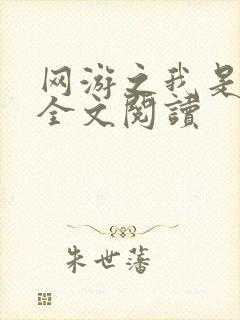 网游之我是
全文閱讀
朱世藩